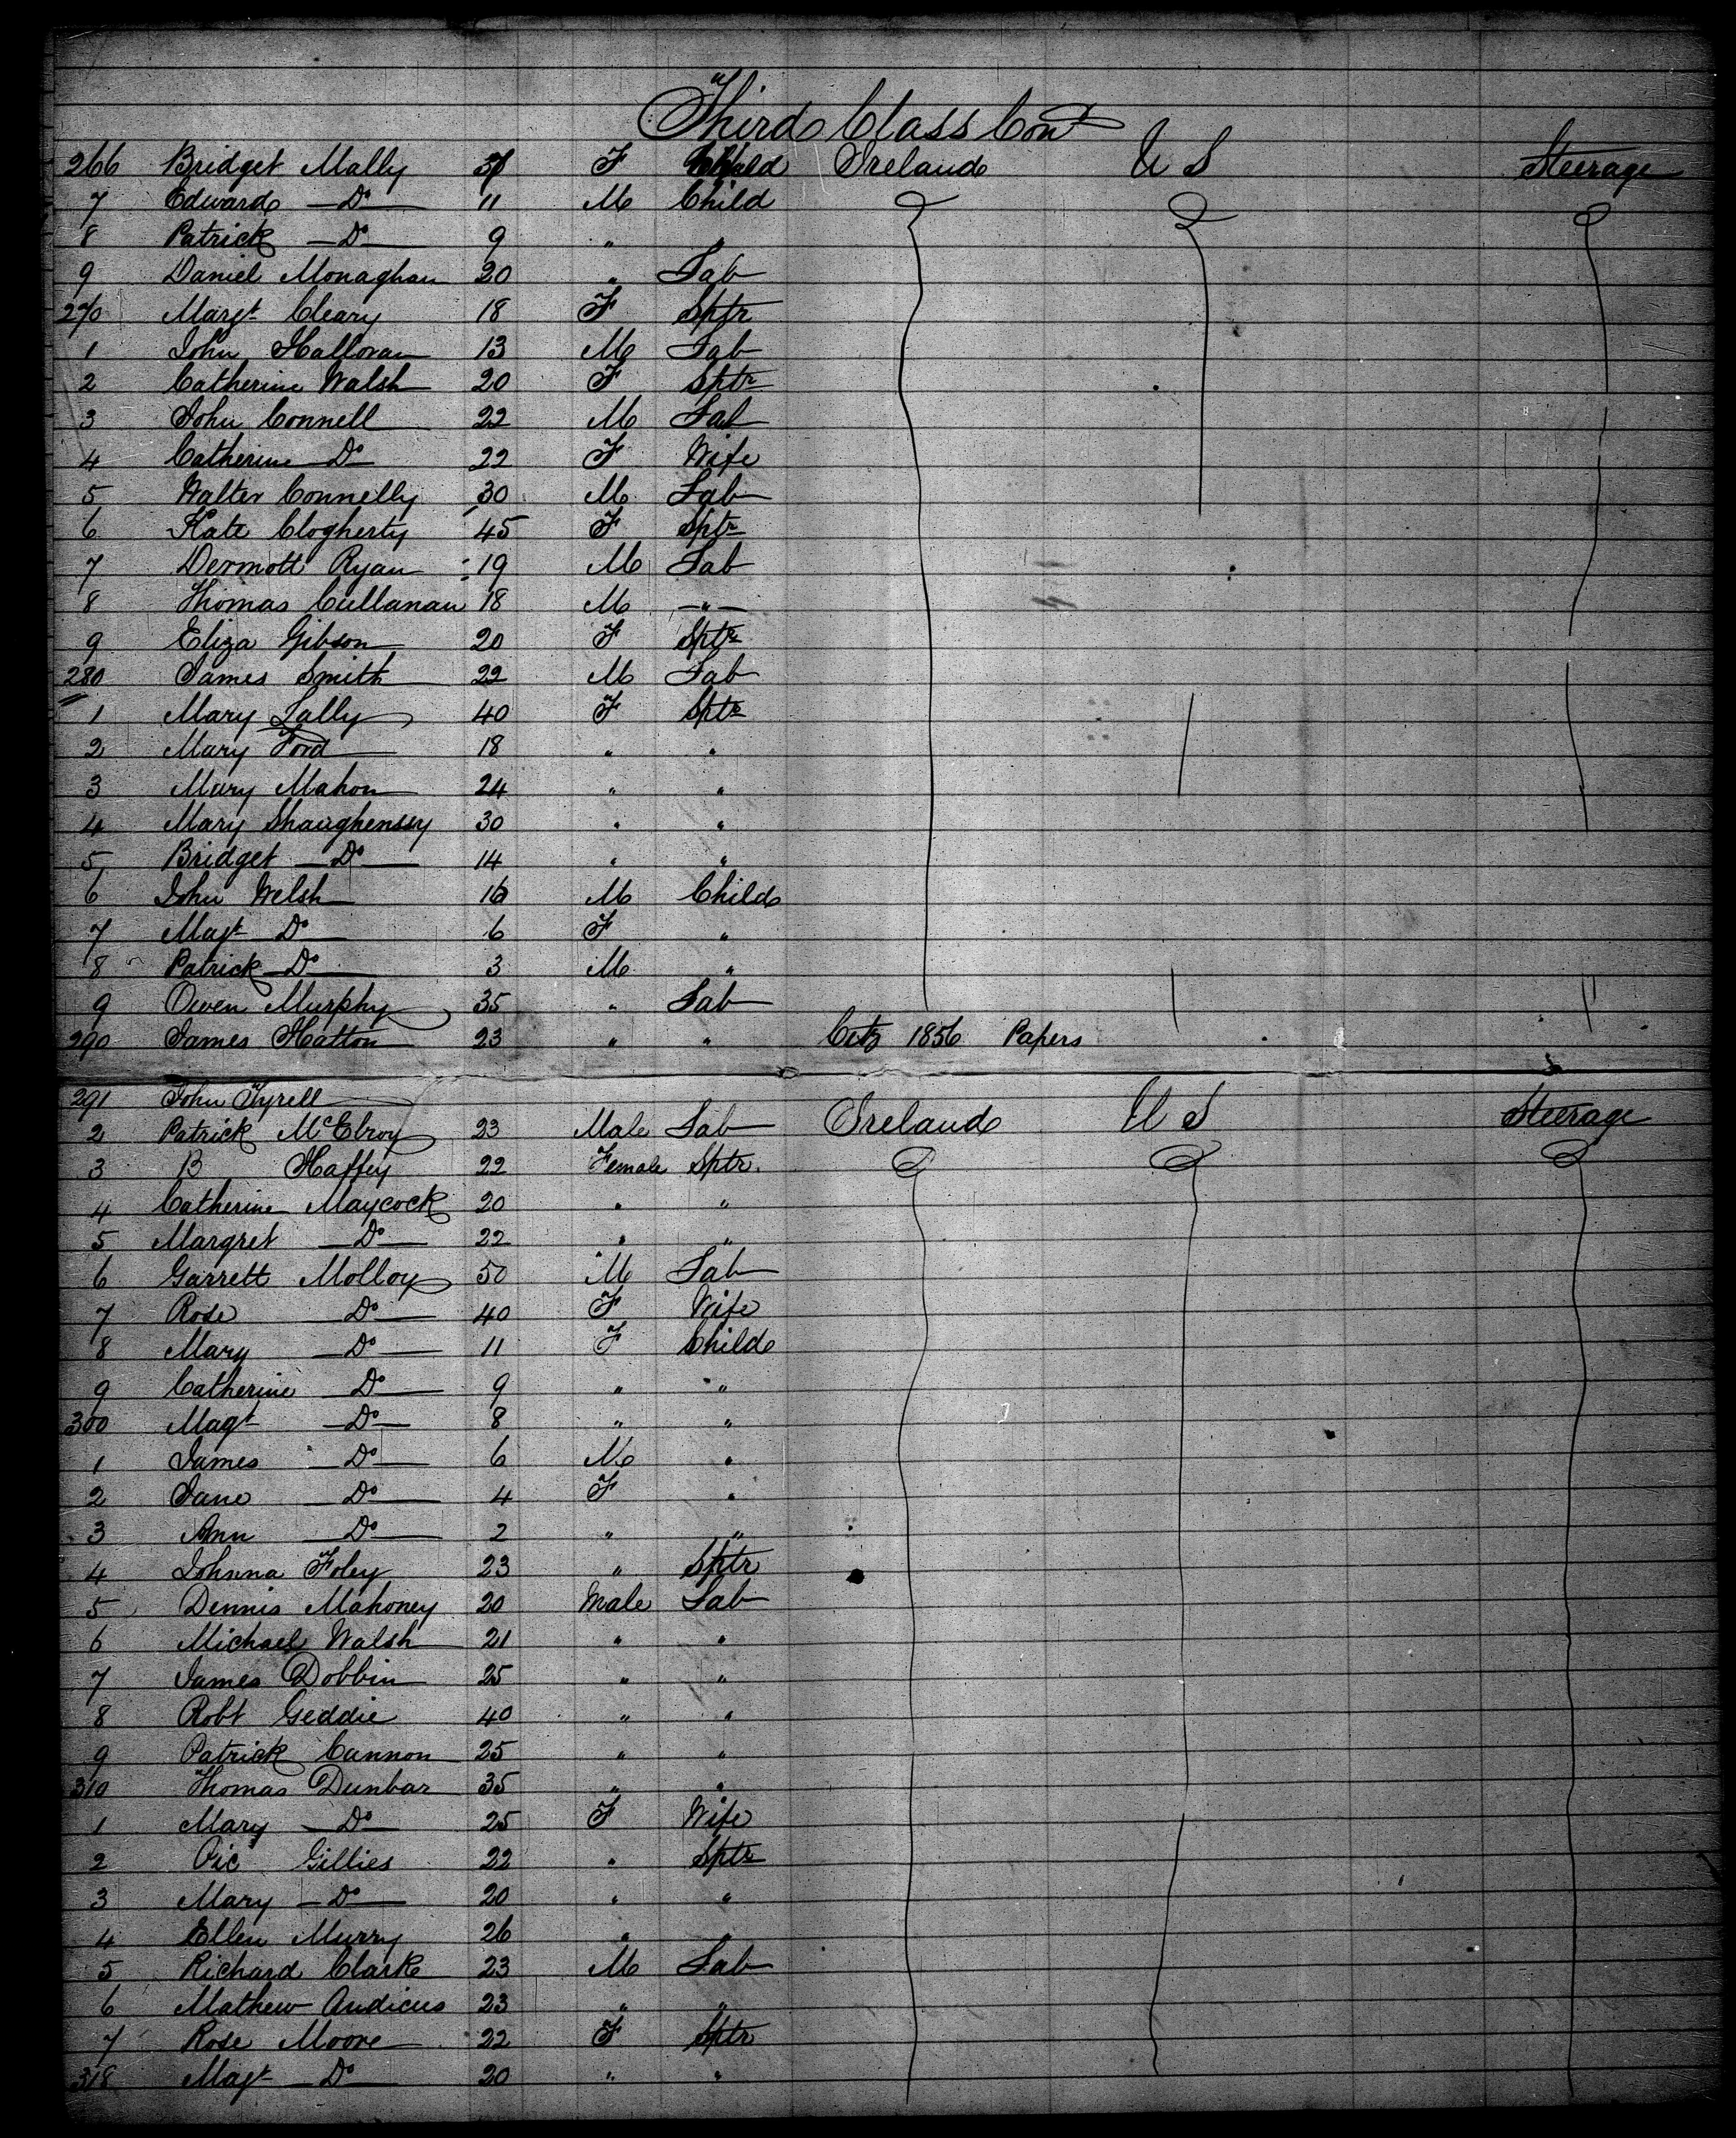 Third Class Cont
266 Bridget Mally 37 F Ireland U S Steerage
7 Edward — Do — 11 M Child
8 Patrick — Do — 9 " "
9 Daniel Monaghan 20 " Lab
270 Margt Cleary 18 F Sptr
1 John Halloran 13 M Lab
2 Catherine Walsh 20 F Sptr
3 John Connell 22 M Lab
4 Catherine Do 22 F Wife
5 Walter Connelly 30 M Lab
6 Kate Clogherty 45 F Sptr
7 Dermott Ryan 19 M Lab
8 Thomas Cullanan 18 M — " —
9 Eliza Gibson 20 F Sptr
280 James Smith 22 M Lab
1 Mary Lally 40 F Sptr
2 Mary Ford 18 " "
3 Mary Mahon 24 " "
4 Mary Shaughenssy 30 " "
5 Bridget — Do — 14 " "
6 John Welsh M Child
7 Magt Do 6 F "
8 Patrick Do 3 M "
9 Owen Murphy 35 " Lab
290 James Hatton 23 " " Citz 1856 Papers
291 John Tyrell
2 Patrick McElroy 23 Male Lab Ireland U S Steerage
3 B Haffey 22 Female Sptr.
4 Catherine Maycock 20 " "
5 Margret — Do — 22 " "
6 Garrett Molloy 50 M Lab
7 Rose — Do — 40 F Wife
8 Mary — Do — 11 F Child
9 Catherine — Do — 9 " "
300 Magt — Do — 8 " "
1 James — Do — 6 M "
2 Jane — Do — 4 F "
3 Ann — Do — 2 " "
4 Johnna Foley 23 " Sptr
5 Dennis Mahoney 20 Male Lab
6 Michael Walsh 21 " "
7 James Dobbin 25 " "
8 Robt Geddie 40 " "
9 Patrick Cannon 25 " "
310 Thomas Dunbar 35 " "
1 Mary — Do — 25 F Wife
2 Gillies 22 " Sptr
3 Mary — Do — 20 " "
4 Ellen Murry 26 " "
5 Richard Clark 23 M Lab
6 Mathew Andicus 23 " "
7 Rose Moore 22 F Sptr
318 Magt — Do 20 " "